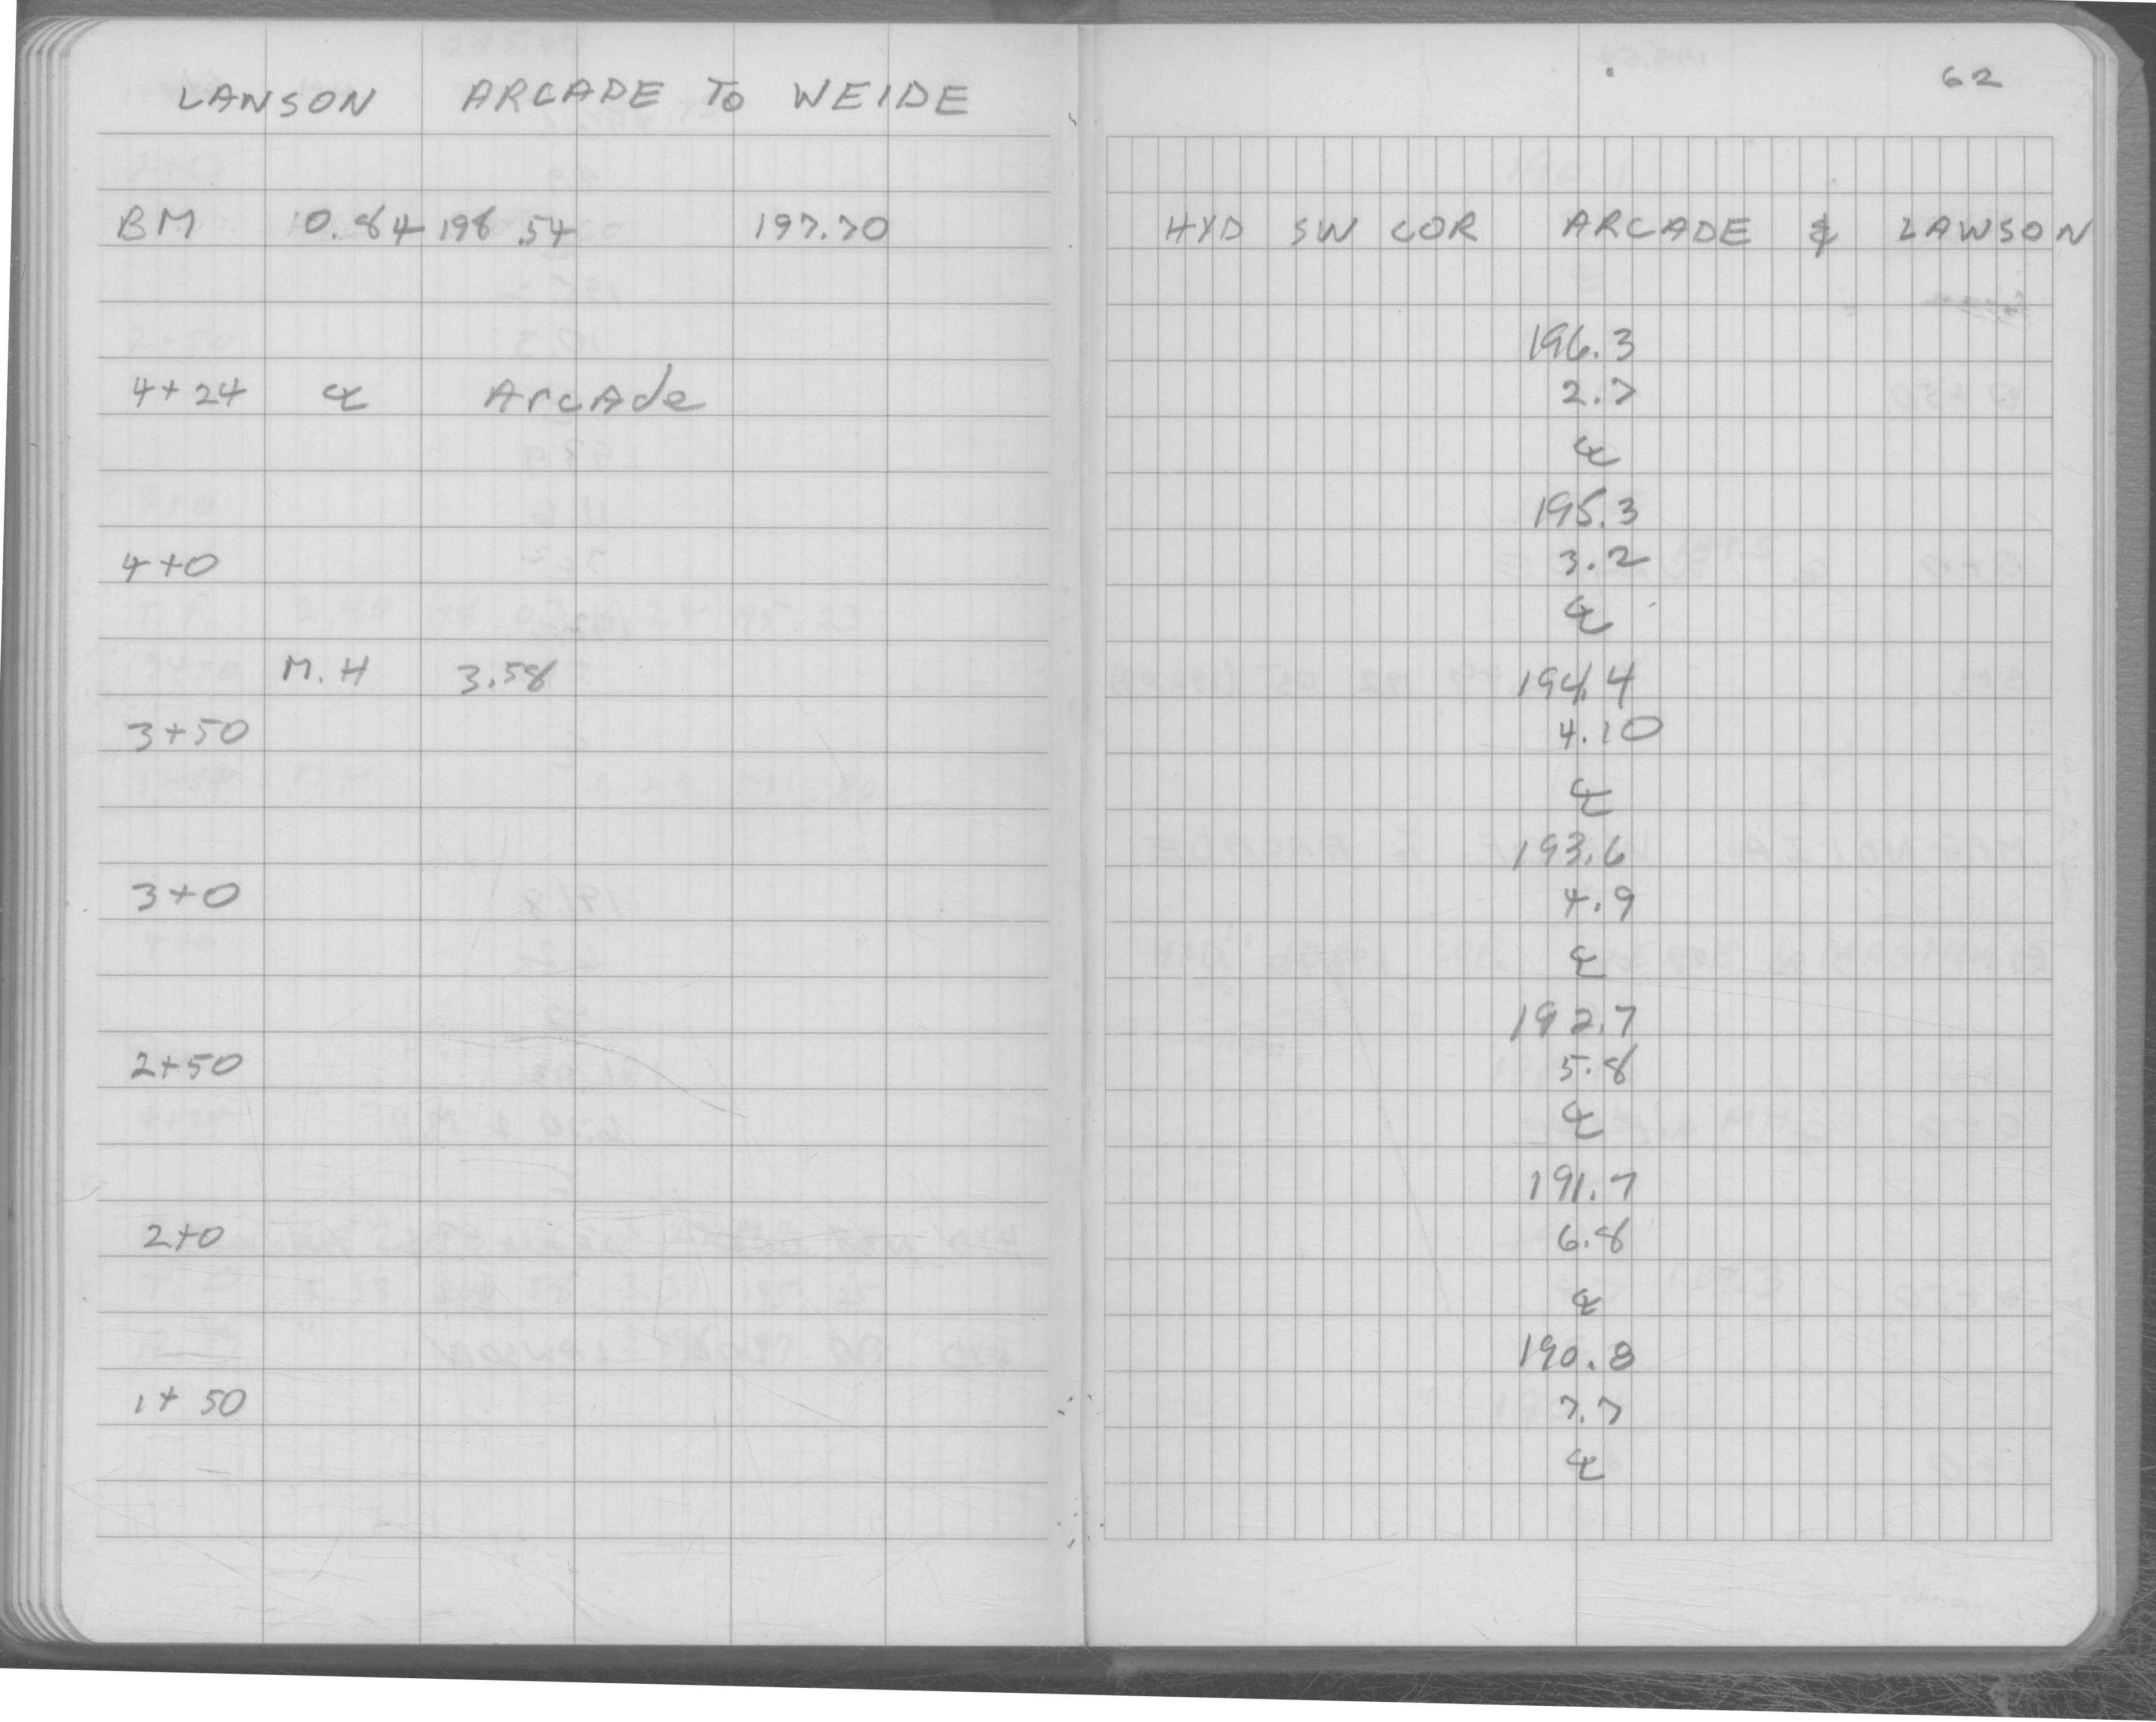 LAWSON ARCADE TO WEIDE
62
BM 0.84 198.54 197.70 HYD SW COR ARCADE & LAWSON
196.3
4+24 ℄ Arcade 2.7
℄
195.3
4+0 3.2
℄
M.H 3.58 194.4
3+50 4.10
℄
193.6
3+0 4.9
℄
192.7
2+50 5.8
℄
191.7
2+0 6.8
℄
190.8
1+50 7.7
℄